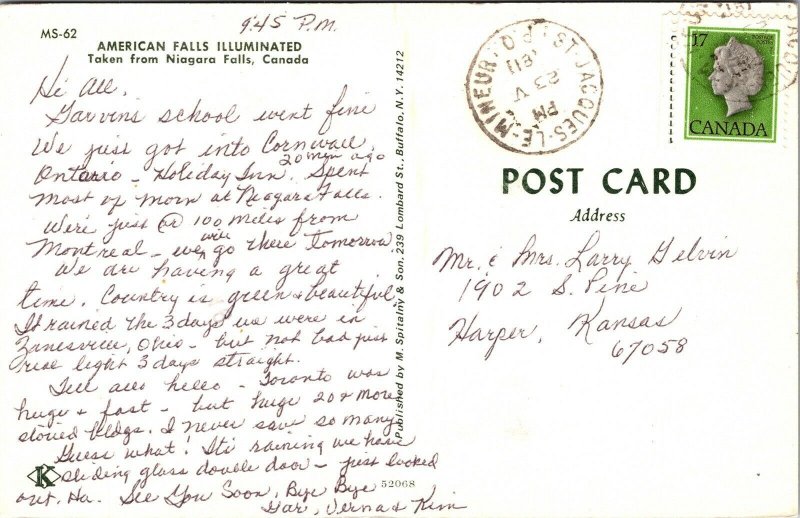 9:45 P.M.
MS-62
AMERICAN FALLS ILLUMINATED
Taken from Niagara Falls, Canada
Hi All,
Garvins school went fine
We just got into Cornwall,
20 min ago
Ontario - Holiday Inn. Spent
most of morn at Niagara Falls.
We're just @ 100 miles from
Montreal - we will go there tomorrow
We are having a great
time. Country is green & beautiful.
It rained the 3 days we were in
Zanesville, Ohio - but not bad just
real light 3 days straight.
Tell all hello - Toronto was
huge & fast - but huge 20 & more
storied bldgs. I never saw so many
Guess what! It's raining we have
sliding glass double door - just looked
out, Ha. See You Soon, Bye Bye
Gar, Verna & Kim
K
52068
Published by M. Spitalny & Son, 239 Lombard St., Buffalo, N.Y. 14212
ST-JACQUES-LE-MINEUR P.Q.
PM
23 V
81
17
POSTAGE
POSTES
CANADA
POST CARD
Address
Mr. & Mrs. Larry Gelvin
1902 S. Pine
Harper, Kansas
67058